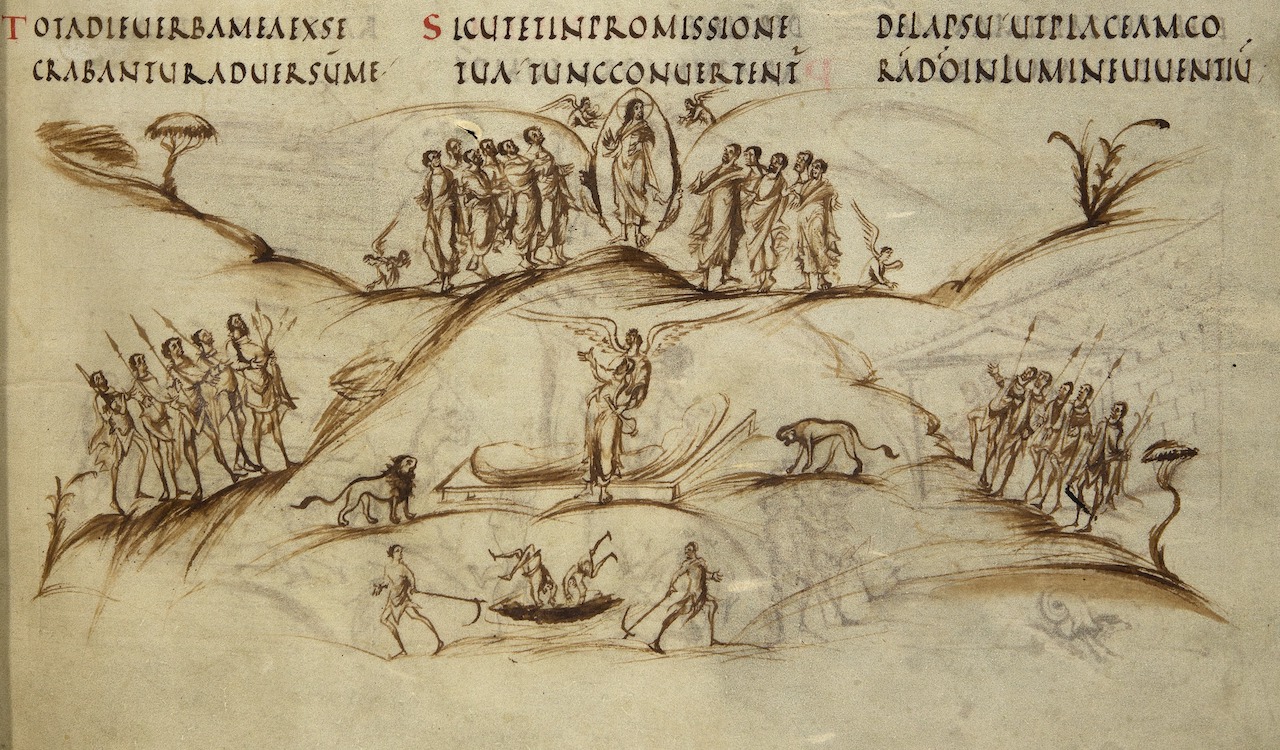 TOTADIEUERBAMEAEXSE
CRABANTURADUERSŪME·
SICUTETINPROMISSIONE
TUA·TUNCCONUERTENT̄
DELAPSU·UTPLACEAMCO
RĀDŌINLUMINEUIUENTIŪ